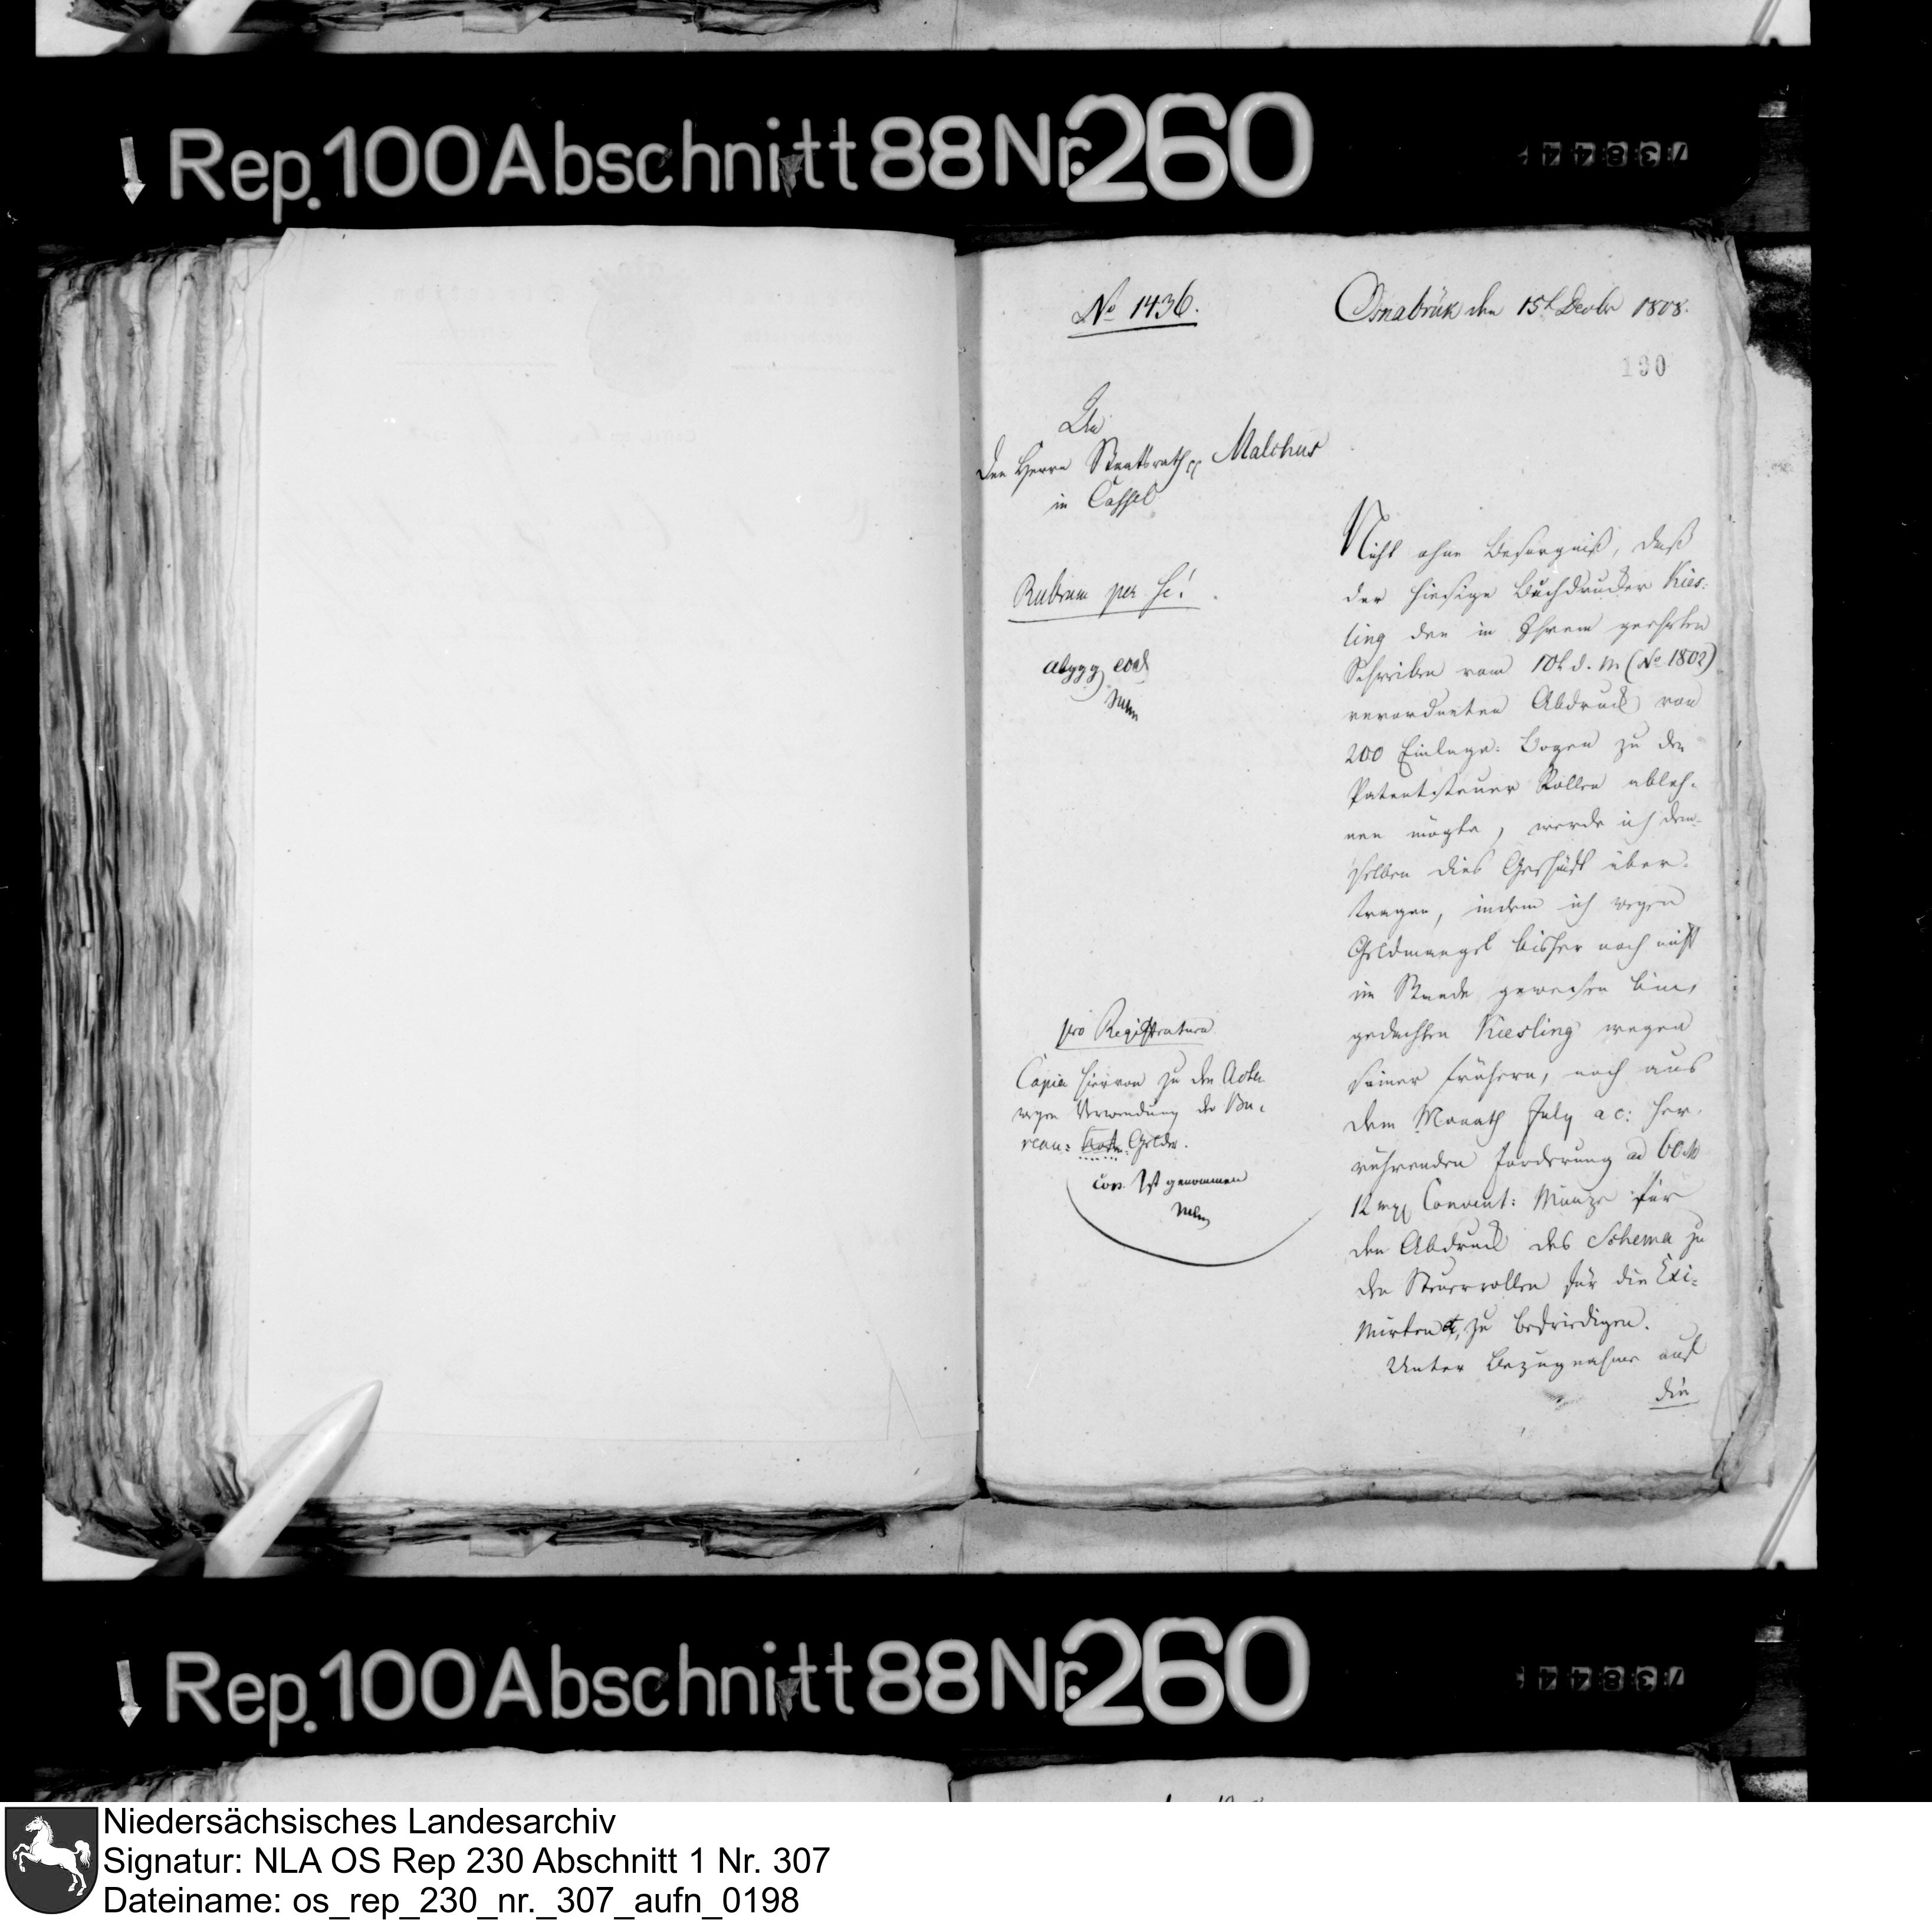 Rep. 100 Abschnitt 88 Nr. 260
73844
No 1436.
Osnabrük den 15t Decbr 1808.
190
An
den Herrn Staatsrath Malchus
in Cassel
Rubrum per se!
abgg eod
pro Registratura
Copia hiervon zu den Acten
wegen Verwendung der Bu-
reau: Gelder.
con. Ist genommen
Nicht ohne Besorgniß, daß
der hiesige Buchdrucker Kies-
ling den in Ihrem geehrten
Schreiben vom 10t d. M (No 1802)
verordneten Abdruck von
200 Einlage-Bogen zu den
Patentsteuer Rollen ableh-
nen mögte, werde ich dem-
selben dies Geschäft über-
tragen, indem ich wegen
Geldmangel bisher noch nicht
im Stande gewesen bin,
gedachten Kiesling wegen
seiner frühern, noch aus
dem Monath July a c: her-
rührenden Forderung ad 60
12 Convent: Münze für
den Abdruck des Schema zu
den Steuerrollen für die Exi-
mirten zu befriedigen.
Unter Bezugnahme auf
die
Rep. 100 Abschnitt 88 Nr. 260
73844
Niedersächsisches Landesarchiv
Signatur: NLA OS Rep 230 Abschnitt 1 Nr. 307
Dateiname: os_rep_230_nr._307_aufn_0198